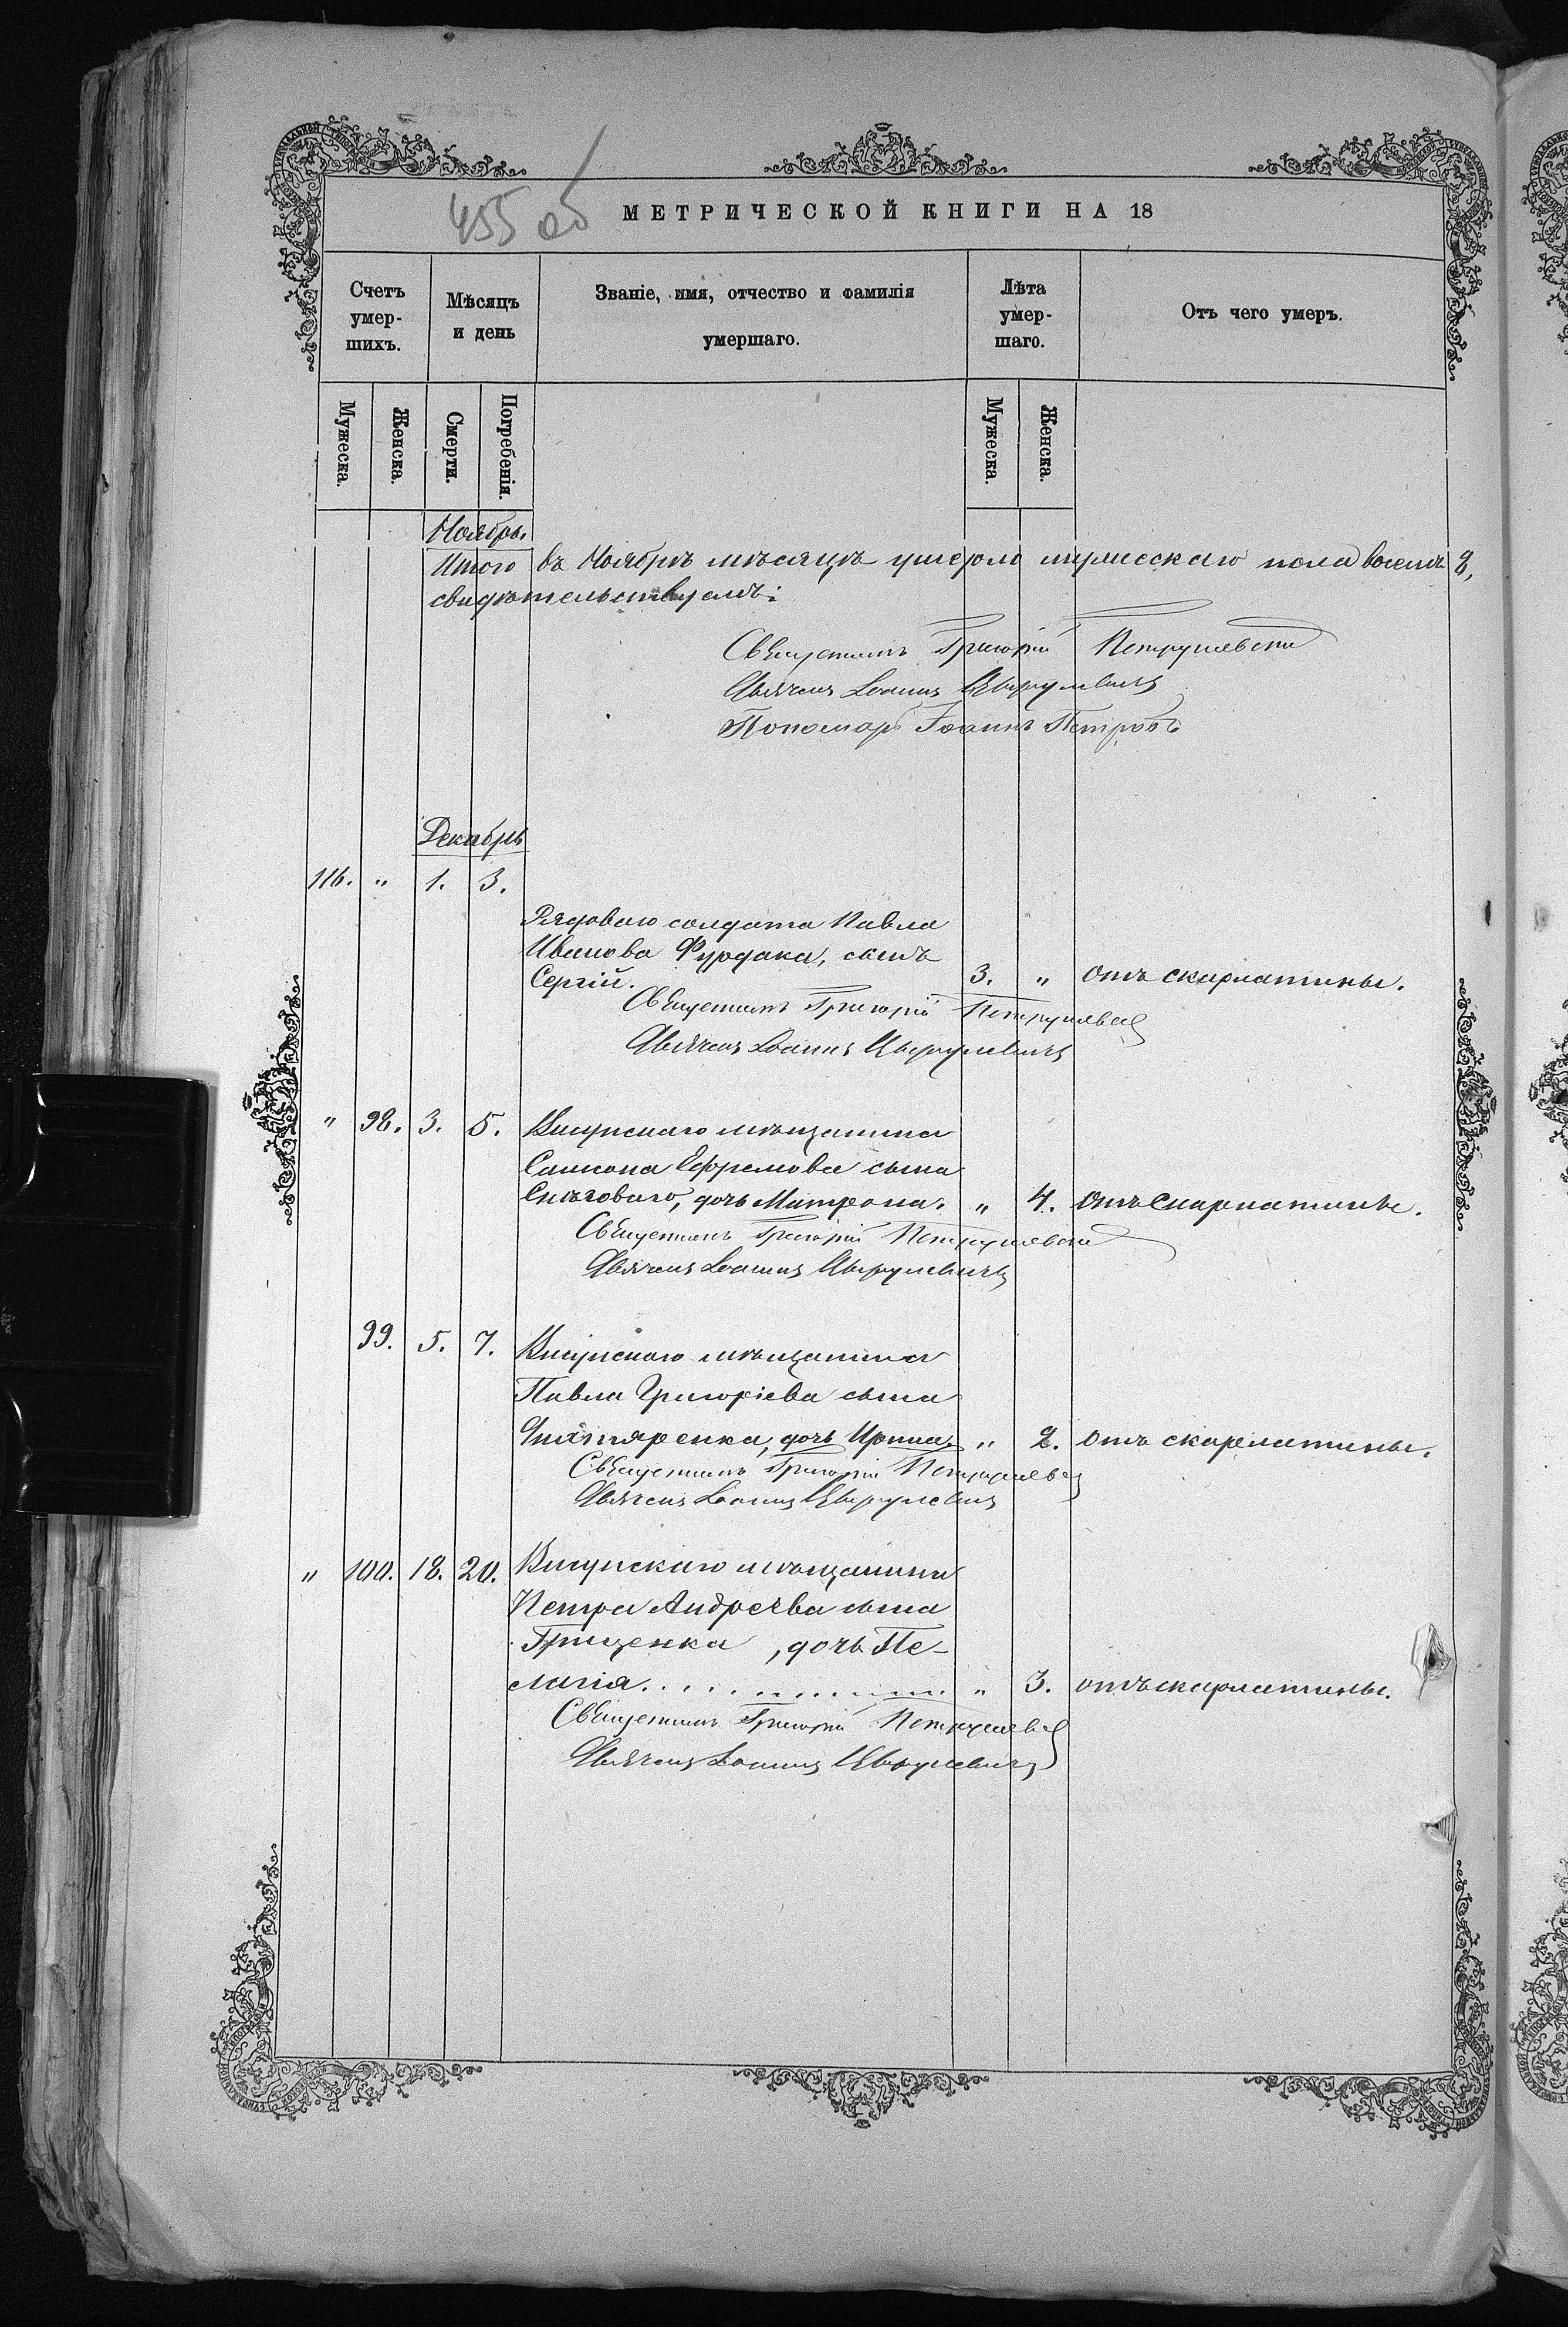 455 об
МЕТРИЧЕСКОЙ КНИГИ НА 18
Счетъ умер-шихъ.
Мѣсяцъ и день
Званіе, имя, отчество и фамилія умершаго.
Лѣта умер-шаго.
Отъ чего умеръ.
Мужеска.
Женска.
Смерти.
Погребенія.
Мужеска.
Женска.
Ноябрь.
Итого въ Ноябрѣ мѣсяцѣ умерло мужескаго пола восемь 8,
свидѣтельствуемъ:
Священникъ Григорій Петрушевскій
Дьячекъ Іоаннъ
Пономарь Іоаннъ Петровъ
Декабрь
116. „ 1. 3.
Рядоваго солдата Павла
Иванова Фурдака, сынъ
Сергій. 3. „ отъ скарлатины.
Священникъ Григорій Петрушевс
Дьячекъ Іоаннъ
„ 98. 3. 5. Висунскаго мѣщанина
Самсона Ефремова сына
Снѣговаго, дочь Матрона. „ 4. отъ скарлатины.
Священникъ Григорій Петрушевскій
Дьячекъ Іоаннъ
99. 5. 7. Висунскаго мѣщанина
Павла Григоріева сына
дочь Ирина. „ 2. отъ скарлатины.
Священникъ Григорій Петрушевс
Дьячекъ Іоаннъ
„ 100. 18. 20. Висунскаго мѣщанина
Петра Андреева сына
Гриценка, дочь Пе-
лагія. „ 3. отъ скарлатины.
Священникъ Григорій Петрушевс
Дьячекъ Іоаннъ